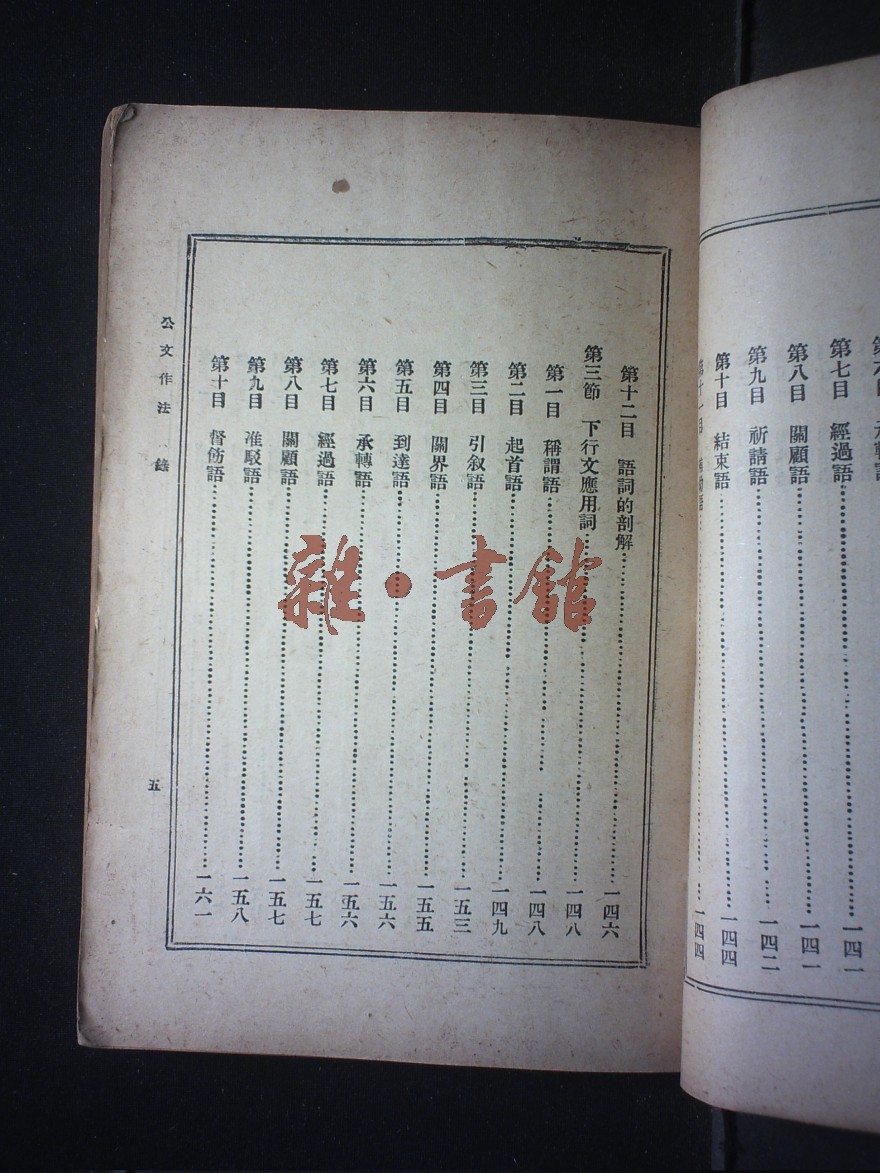 第七目 經過語 一四一
第八目 關顧語 一四一
第九目 祈請語 一四二
第十目 結束語 一四四
一四四
第十二目 語詞的剖解 一四六
第三節 下行文應用詞 一四八
第一目 稱謂語 一四八
第二目 起首語 一四九
第三目 引敘語 一五三
第四目 關界語 一五五
第五目 到達語 一五六
第六目 承轉語 一五六
第七目 經過語 一五七
第八目 關顧語 一五七
第九目 准駁語 一五八
第十目 督飭語 一六一
公文作法 錄
五
雜·書館